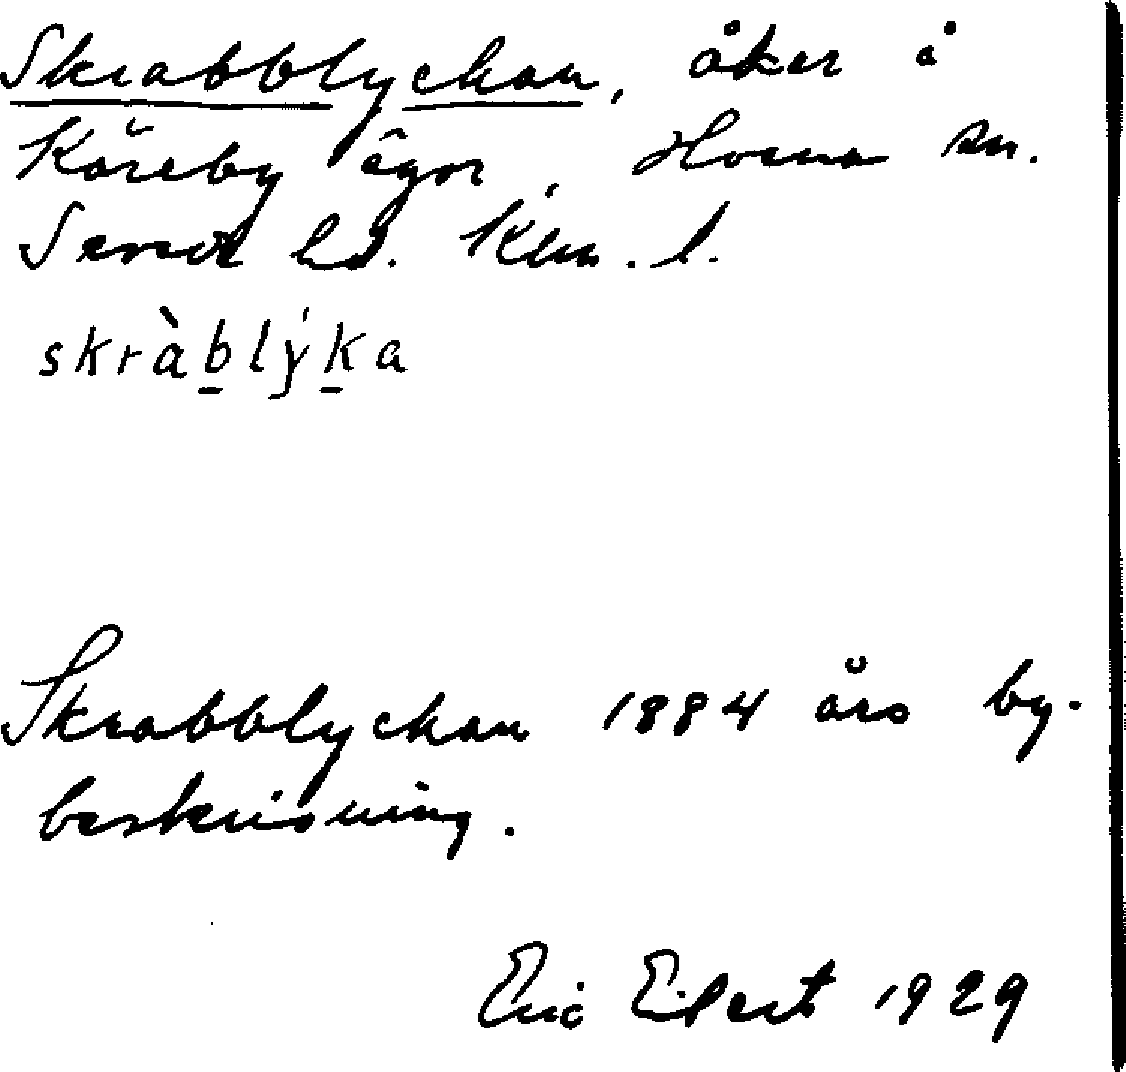 Skrabblyckan, åker å
Kåreby ägor, Hvena sn.
Seved hd. Klm. l.
skràb̲lýk̲a
Skrabblyckan 1884 års by-
beskrivning.
Eric 1929